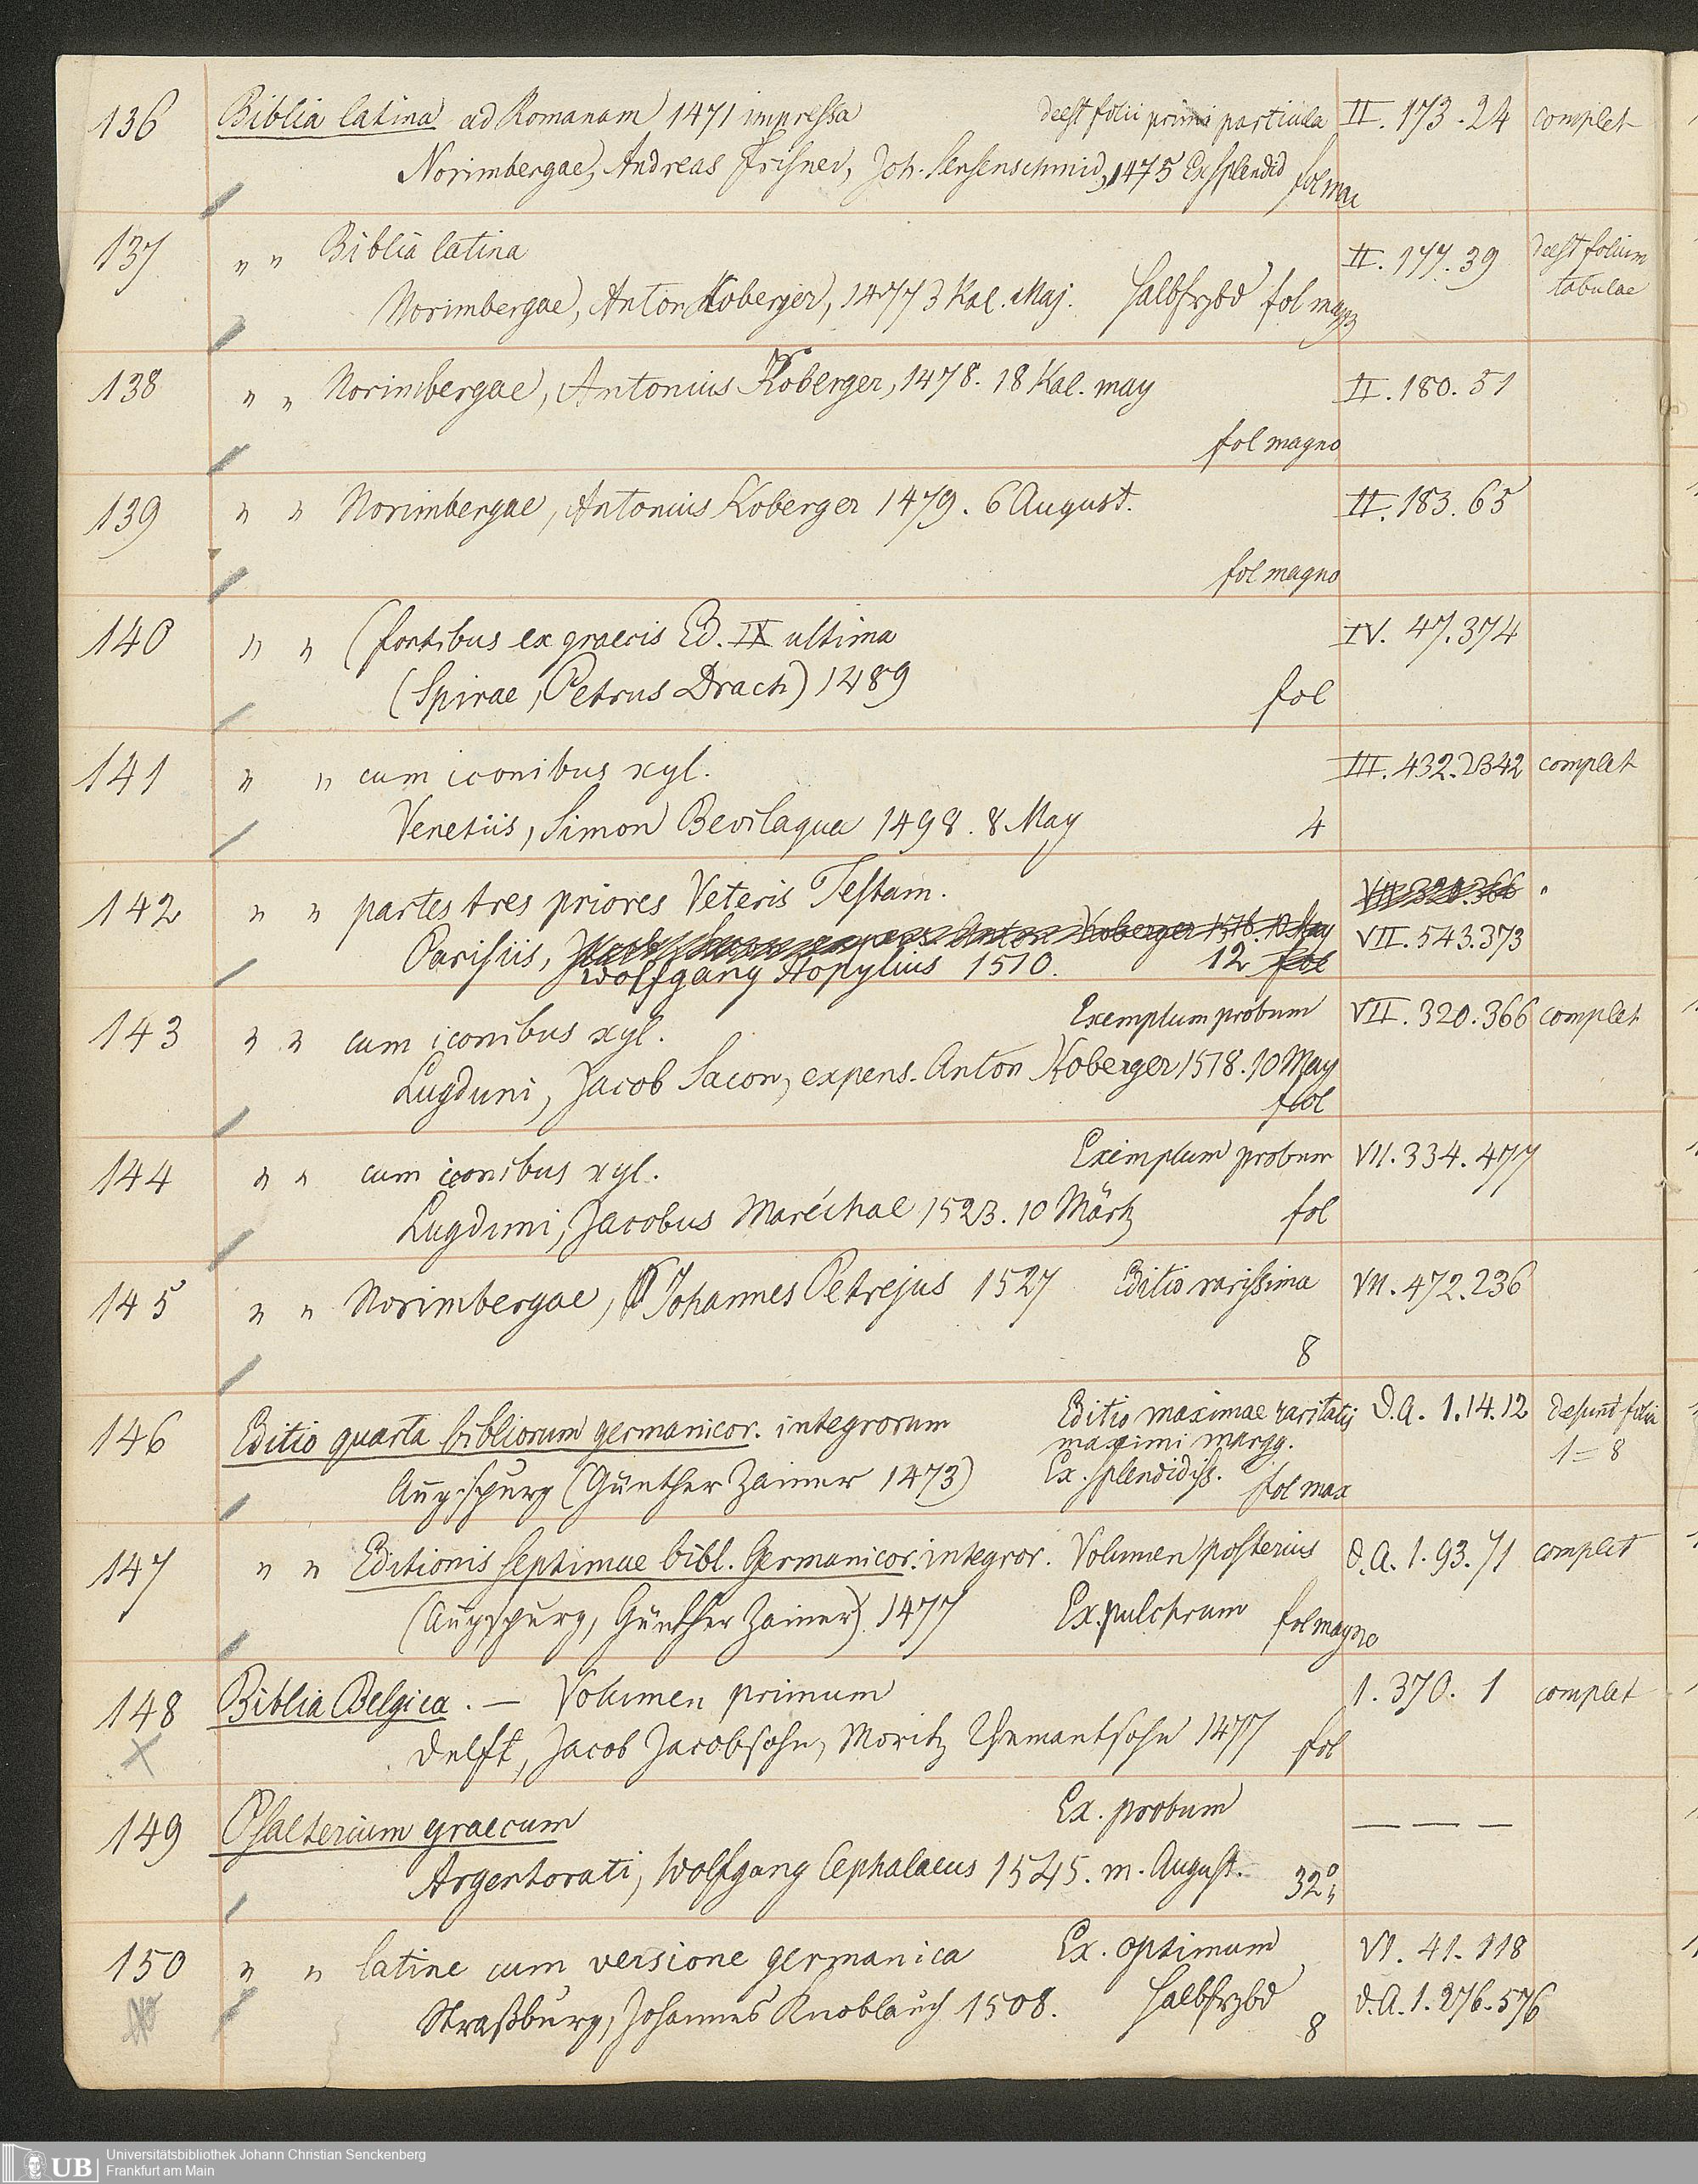 136 Biblia latina ad Romanam 1471 impressa deest folii primi particula II. 173. 24 complet
Norimbergae, Andreas Frisner, Joh. Sensenschmid, 1475 Ex splendid fol max
137 " " Biblia latina II. 177. 39 deest folium
tabulae
Norimbergae, Anton Koberger, 1477 3 Kal. Maj. Halbfrzbd fol magno
138 " " Norimbergae, Antonius Koberger, 1478. 18 Kal. may II. 180. 51
fol magno
139 " " Norimbergae, Antonius Koberger 1479. 6 August. II. 183. 65
fol magno
140 " " (fontibus ex graecis Ed. IX ultima IV. 47. 374
(Spirae, Petrus Drach) 1489 fol
141 " " cum iconibus xyl. III. 432. 2342 complet
Venetiis, Simon Bevilaqua 1498. 8 May 4
142 " " partes tres priores Veteris Testam. VII 320. 366
Parisiis, Jacob Sacon expens. Anton Koberger 1518. 10 May VII. 543. 373
Wolfgang Hopylius 1510. 12 fol
143 " " cum iconibus xyl. Exemplum probum VII. 320. 366 complet
Lugduni, Jacob Sacon, expens. Anton Koberger 1518. 10 May
fol
144 " " cum iconibus xyl. Exemplum probum VII. 334. 477
Lugduni, Jacobus Maréchal 1523. 10 Märtz fol
145 " " Norimbergae, Johannes Petrejus 1527 Editio rarissima VII. 472. 236
8
146 Editio quarta bibliorum germanicor. integrorum Editio maximae raritatis D. A. 1. 14. 12 desunt folia
maximi margg. 1=8
Augspurg (Günther Zainer 1473) Ex. splendidiss. fol max
147 " " Editionis septimae bibl. Germanicor. integror. Volumen posterius d. A. 1. 93. 71 complet
(Augspurg, Günther Zainer) 1477 Ex. pulchrum fol magno
148 Biblia Belgica. — Volumen primum 1. 370. 1 complet
Delft, Jacob Jacobsohn, Moritz Yemantsohn 1477 fol
149 Psalterium graecum Ex. probum — — —
Argentorati, Wolfgang Cephalaeus 1545. m. August. 32°
150 " " latine cum versione germanica Ex. optimum VI. 41. 118
Straßburg, Johannes Knoblauch 1508. Halbfrzbd 8 d. A. 1. 276. 576
UB Universitätsbibliothek Johann Christian Senckenberg
Frankfurt am Main